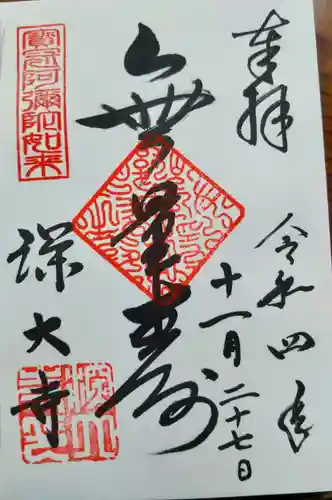 奉拝
令和四年
十一月二十七日
無量寿
寶冠阿彌陀如来
深大寺